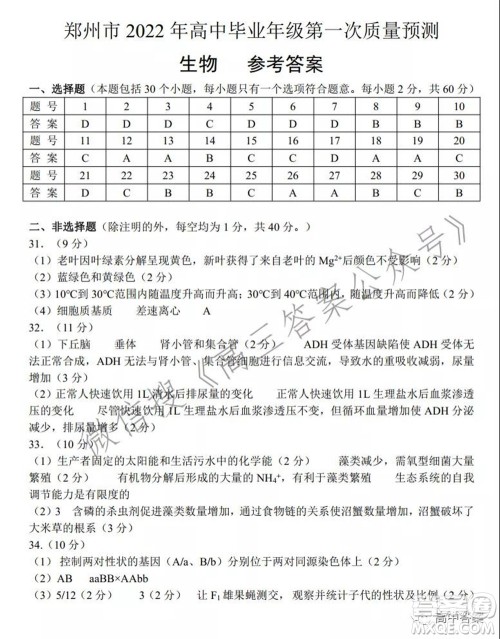 郑州市 2022 年高中毕业年级第一次质量预测
生物 参考答案
一、选择题（本题包括 30 个小题，每小题只有一个选项符合题意。每小题 2 分，共 60 分）
题 号 1 2 3 4 5 6 7 8 9 10
答 案 D D D C D D D B B B
题 号 11 12 13 14 15 16 17 18 19 20
答 案 C A A B C C D B A A
题 号 21 22 23 24 25 26 27 28 29 30
答 案 D C B B C A D B B B
二、非选择题（除注明的外，每空均为 1 分，共 40 分。）
31.（9 分）
（1）老叶因叶绿素分解呈现黄色，新叶获得了来自老叶的 Mg²⁺后颜色不受影响（2 分）
（2）蓝绿色和黄绿色（2 分）
（3）10℃到 30℃范围内随温度升高而升高；30℃到 40℃范围内，随温度升高而降低（2 分）
（4）细胞质基质 差速离心 A
32.（11 分）
（1）下丘脑 垂体 肾小管和集合管（2 分） ADH 受体基因缺陷使 ADH 受体无
法正常合成，ADH 无法与肾小管、集合管细胞进行信息交流，导致水的重吸收减弱，尿量
增加（3 分）
（2）正常人快速饮用 1L 清水后排尿量增加（2 分） 正常人快速饮用 1L 生理盐水后血浆渗透
压的变化 尽管快速饮用 1L 生理盐水后血浆渗透压不变，但循环血量增加使 ADH 分泌
减少，排尿量增多（2 分）
33.（10 分）
（1）生产者固定的太阳能和生活污水中的化学能（2 分） 藻类减少，需氧型细菌大
量繁殖（2 分） 有机物分解后形成的 NH₄⁺，有利于藻类繁殖 生态系统的自我
调节能力是有限度的
（2）3 含磷的杀虫剂促进藻类数量增加，通过食物链的关系使沼蟹数量增加，沼蟹破坏了
大米草的根系（3 分）
34.(10 分）
（1） 控制两对性状的基因（A/a、B/b）分别位于两对同源染色体上（2 分）
（2）AB aaBB×AAbb（2 分）
（3）5/12（2 分） 3（2 分） 让 F₁ 雄果蝇测交，观察并统计子代的表现型及比例（2 分）
微信搜《高三答案公众号》
高中答案